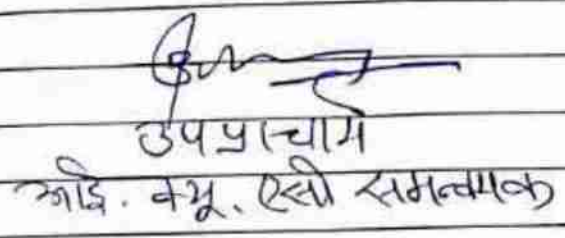 उपप्राचार्य
आई. क्यू. एसी समन्वयक